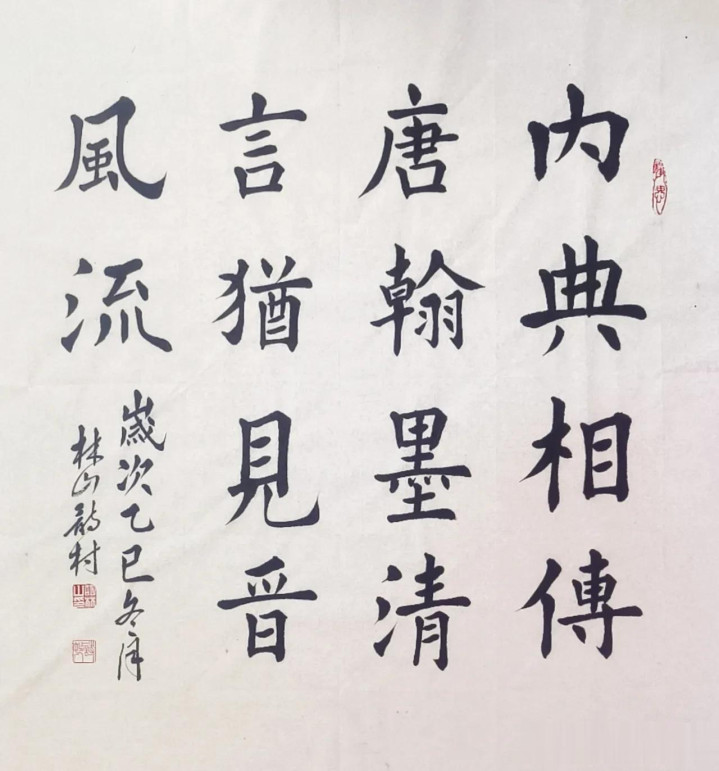 内典相傳
唐翰墨清
言猶見晉
風流
歲次乙巳冬月
林山韵村